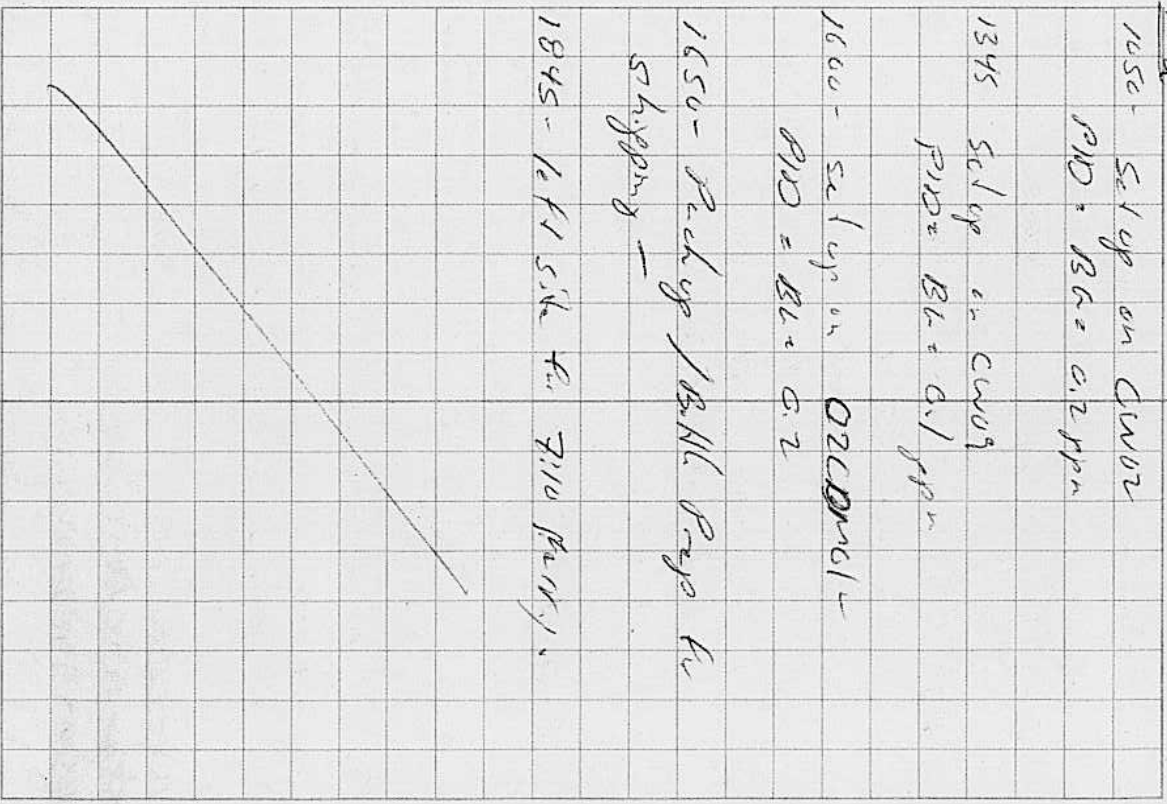 1050- Set up on CW02
PID = BG = 0.2 ppm
1345 Setup on CW09
PID = BG = 0.1 ppm
1600 - Set up on 02CDMW61-
PID = BG = 0.2
1650 - Pack up / Prep for
shipping -
1845 - left site for